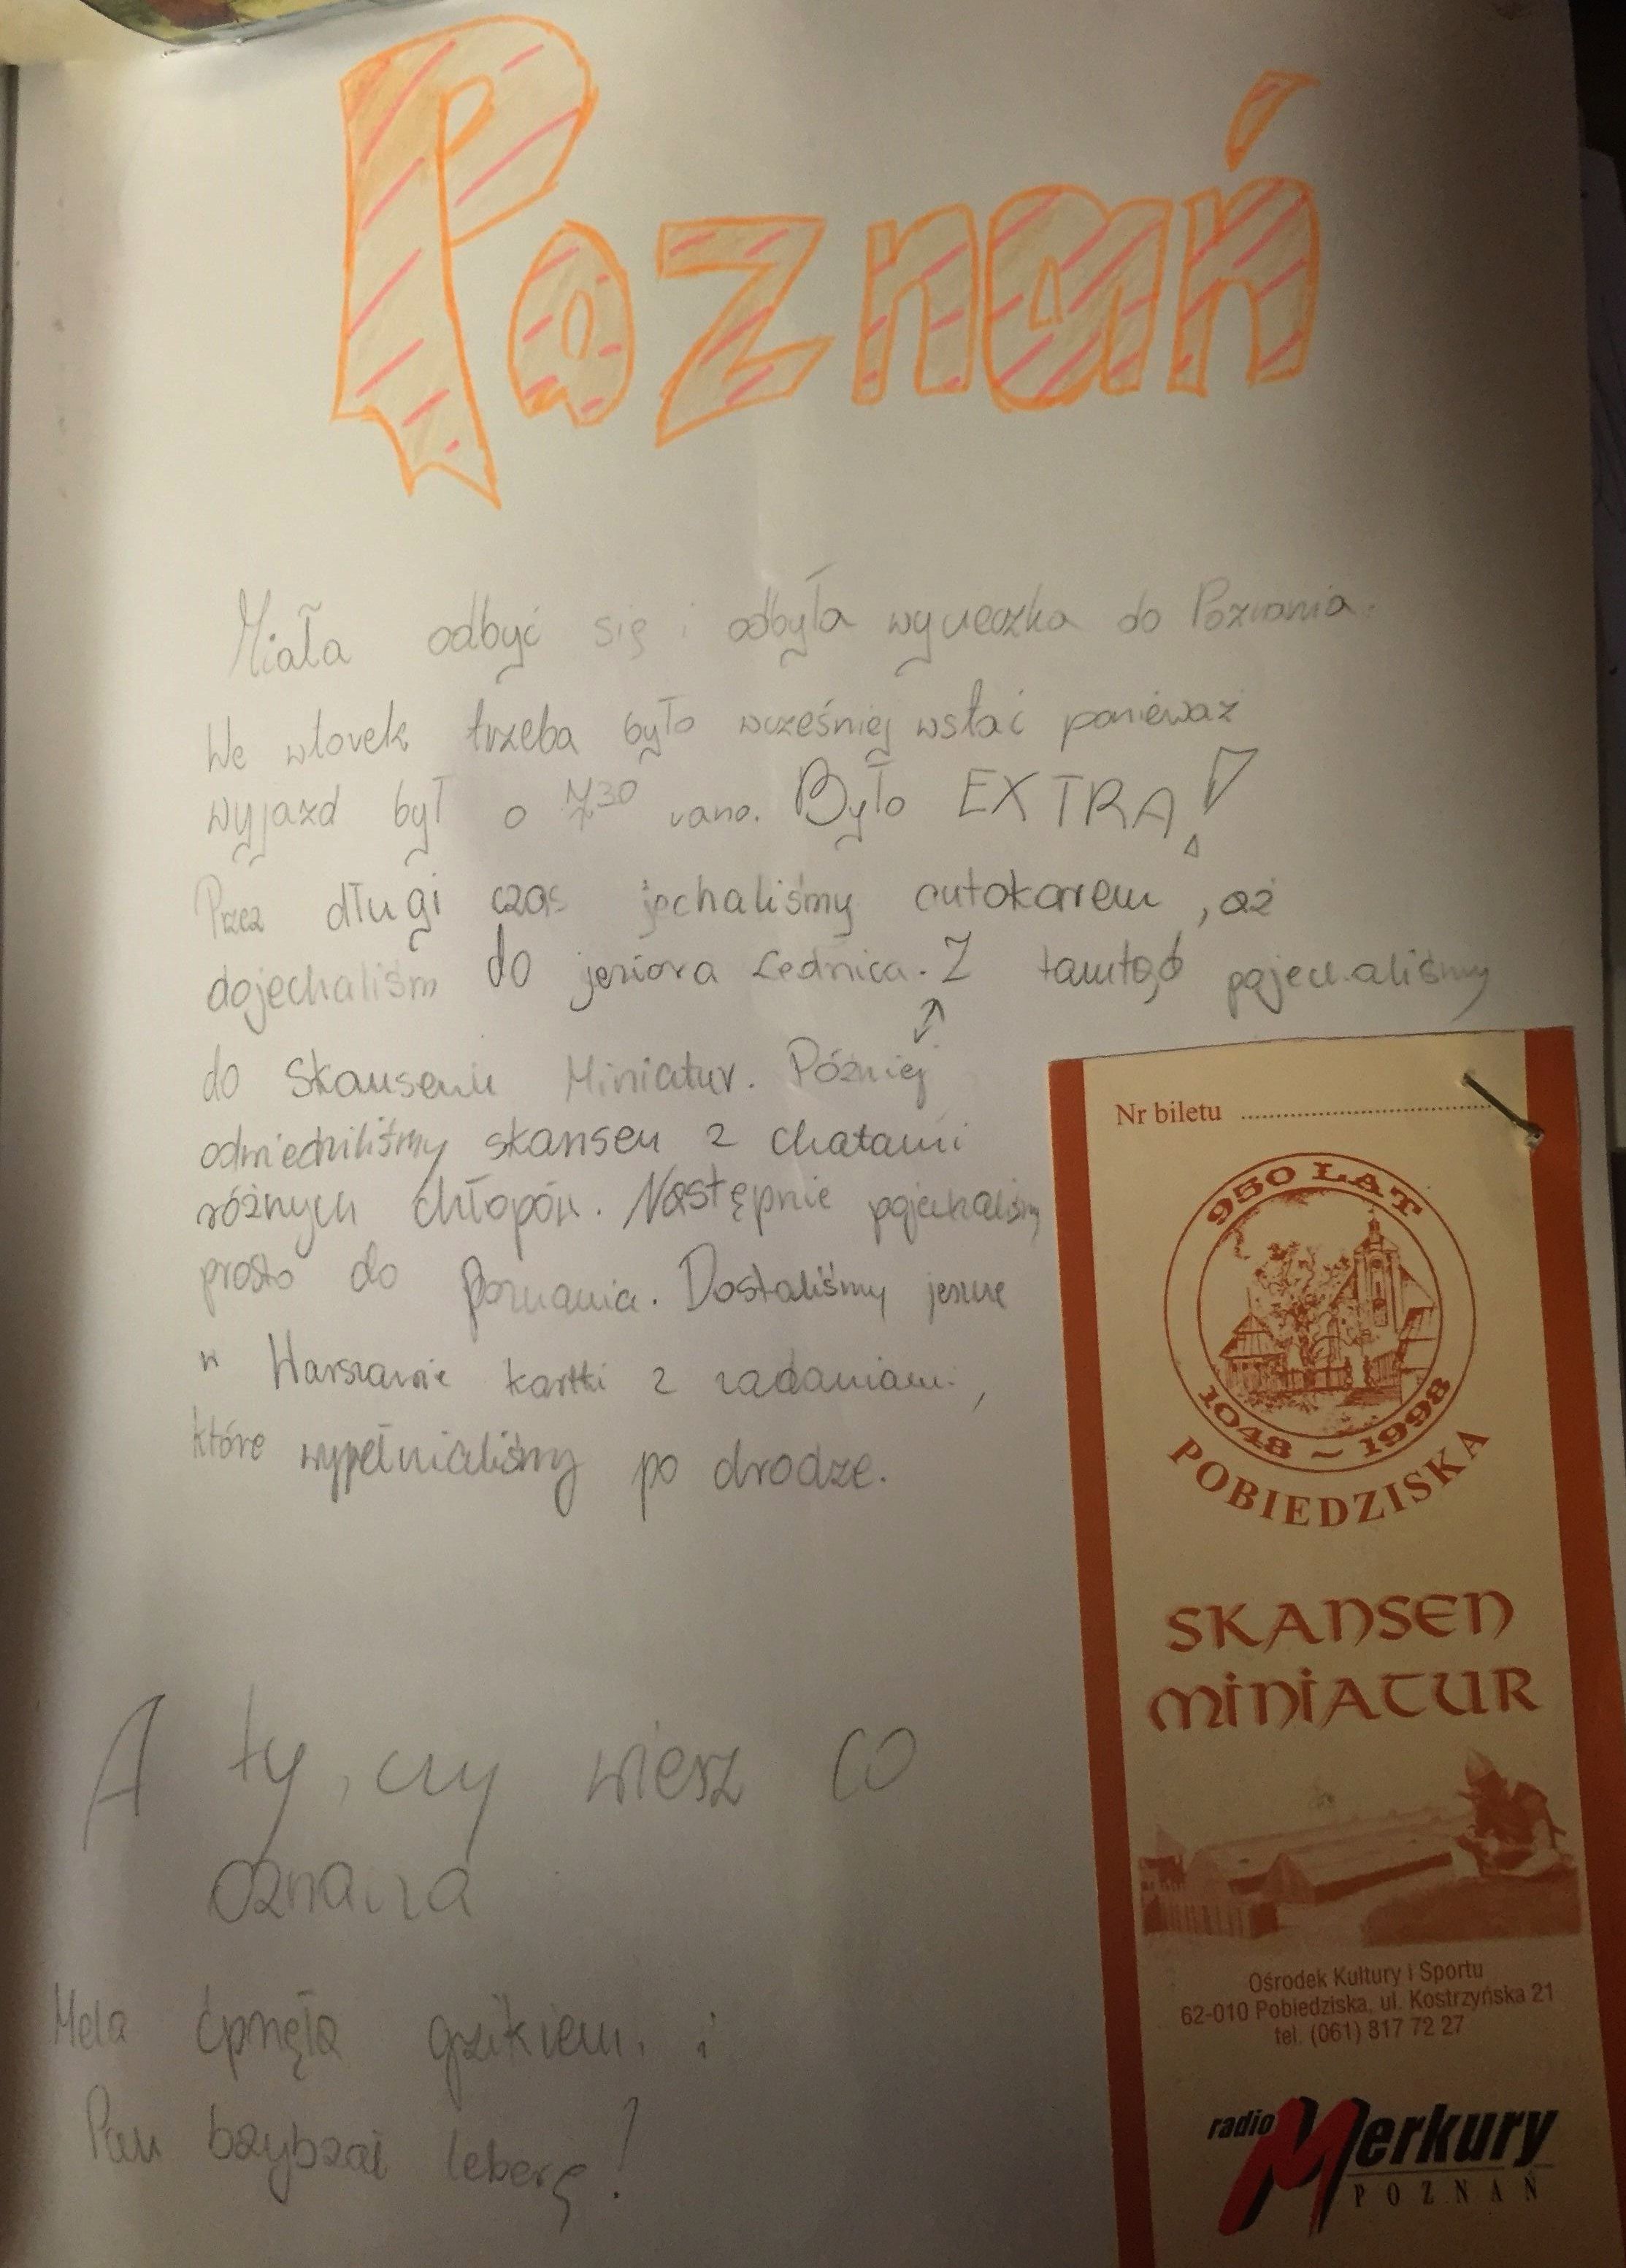 Poznań
Miała odbyć się i odbyła wycieczka do Poznania.
We wtorek trzeba było wcześniej wstać ponieważ
wyjazd był o 7³⁰ rano. Było EXTRA!
Przez długi czas jechaliśmy autokarem, aż
dojechaliśm do jeziora Lednica. Z tamtąd pojechaliśmy
do Skansenu Miniatur. Później
odwiedziliśmy skansen z chatami
różnych chłopów. Następnie pojechaliśmy
prosto do Poznania. Dostaliśmy jeszcze
w Warszawie kartki z zadaniami,
które wypełnialiśmy po drodze.
A ty, czy wiesz co
oznacza
Hela ćpnęła gzikiem i
Pan bzybzał leberę!
Nr biletu
950 LAT
1048 ~ 1998
POBIEDZISKA
SKANSEN
MINIATUR
Ośrodek Kultury i Sportu
62-010 Pobiedziska, ul. Kostrzyńska 21
tel. (061) 817 72 27
radio Merkury
POZNAŃ